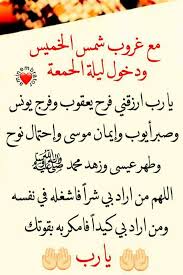 مع غروب شمس الخميس
ودخول ليلة الجمعة
يا رب ارزقني فرح يعقوب وفرج يونس
وصبر أيوب وإيمان موسى وإحتمال نوح
وطهر عيسى وزهد محمد ﷺ
اللهم من اراد بي شراً فاشغله في نفسه
ومن اراد بي كيداً فامكر به بقوتك
يا رب